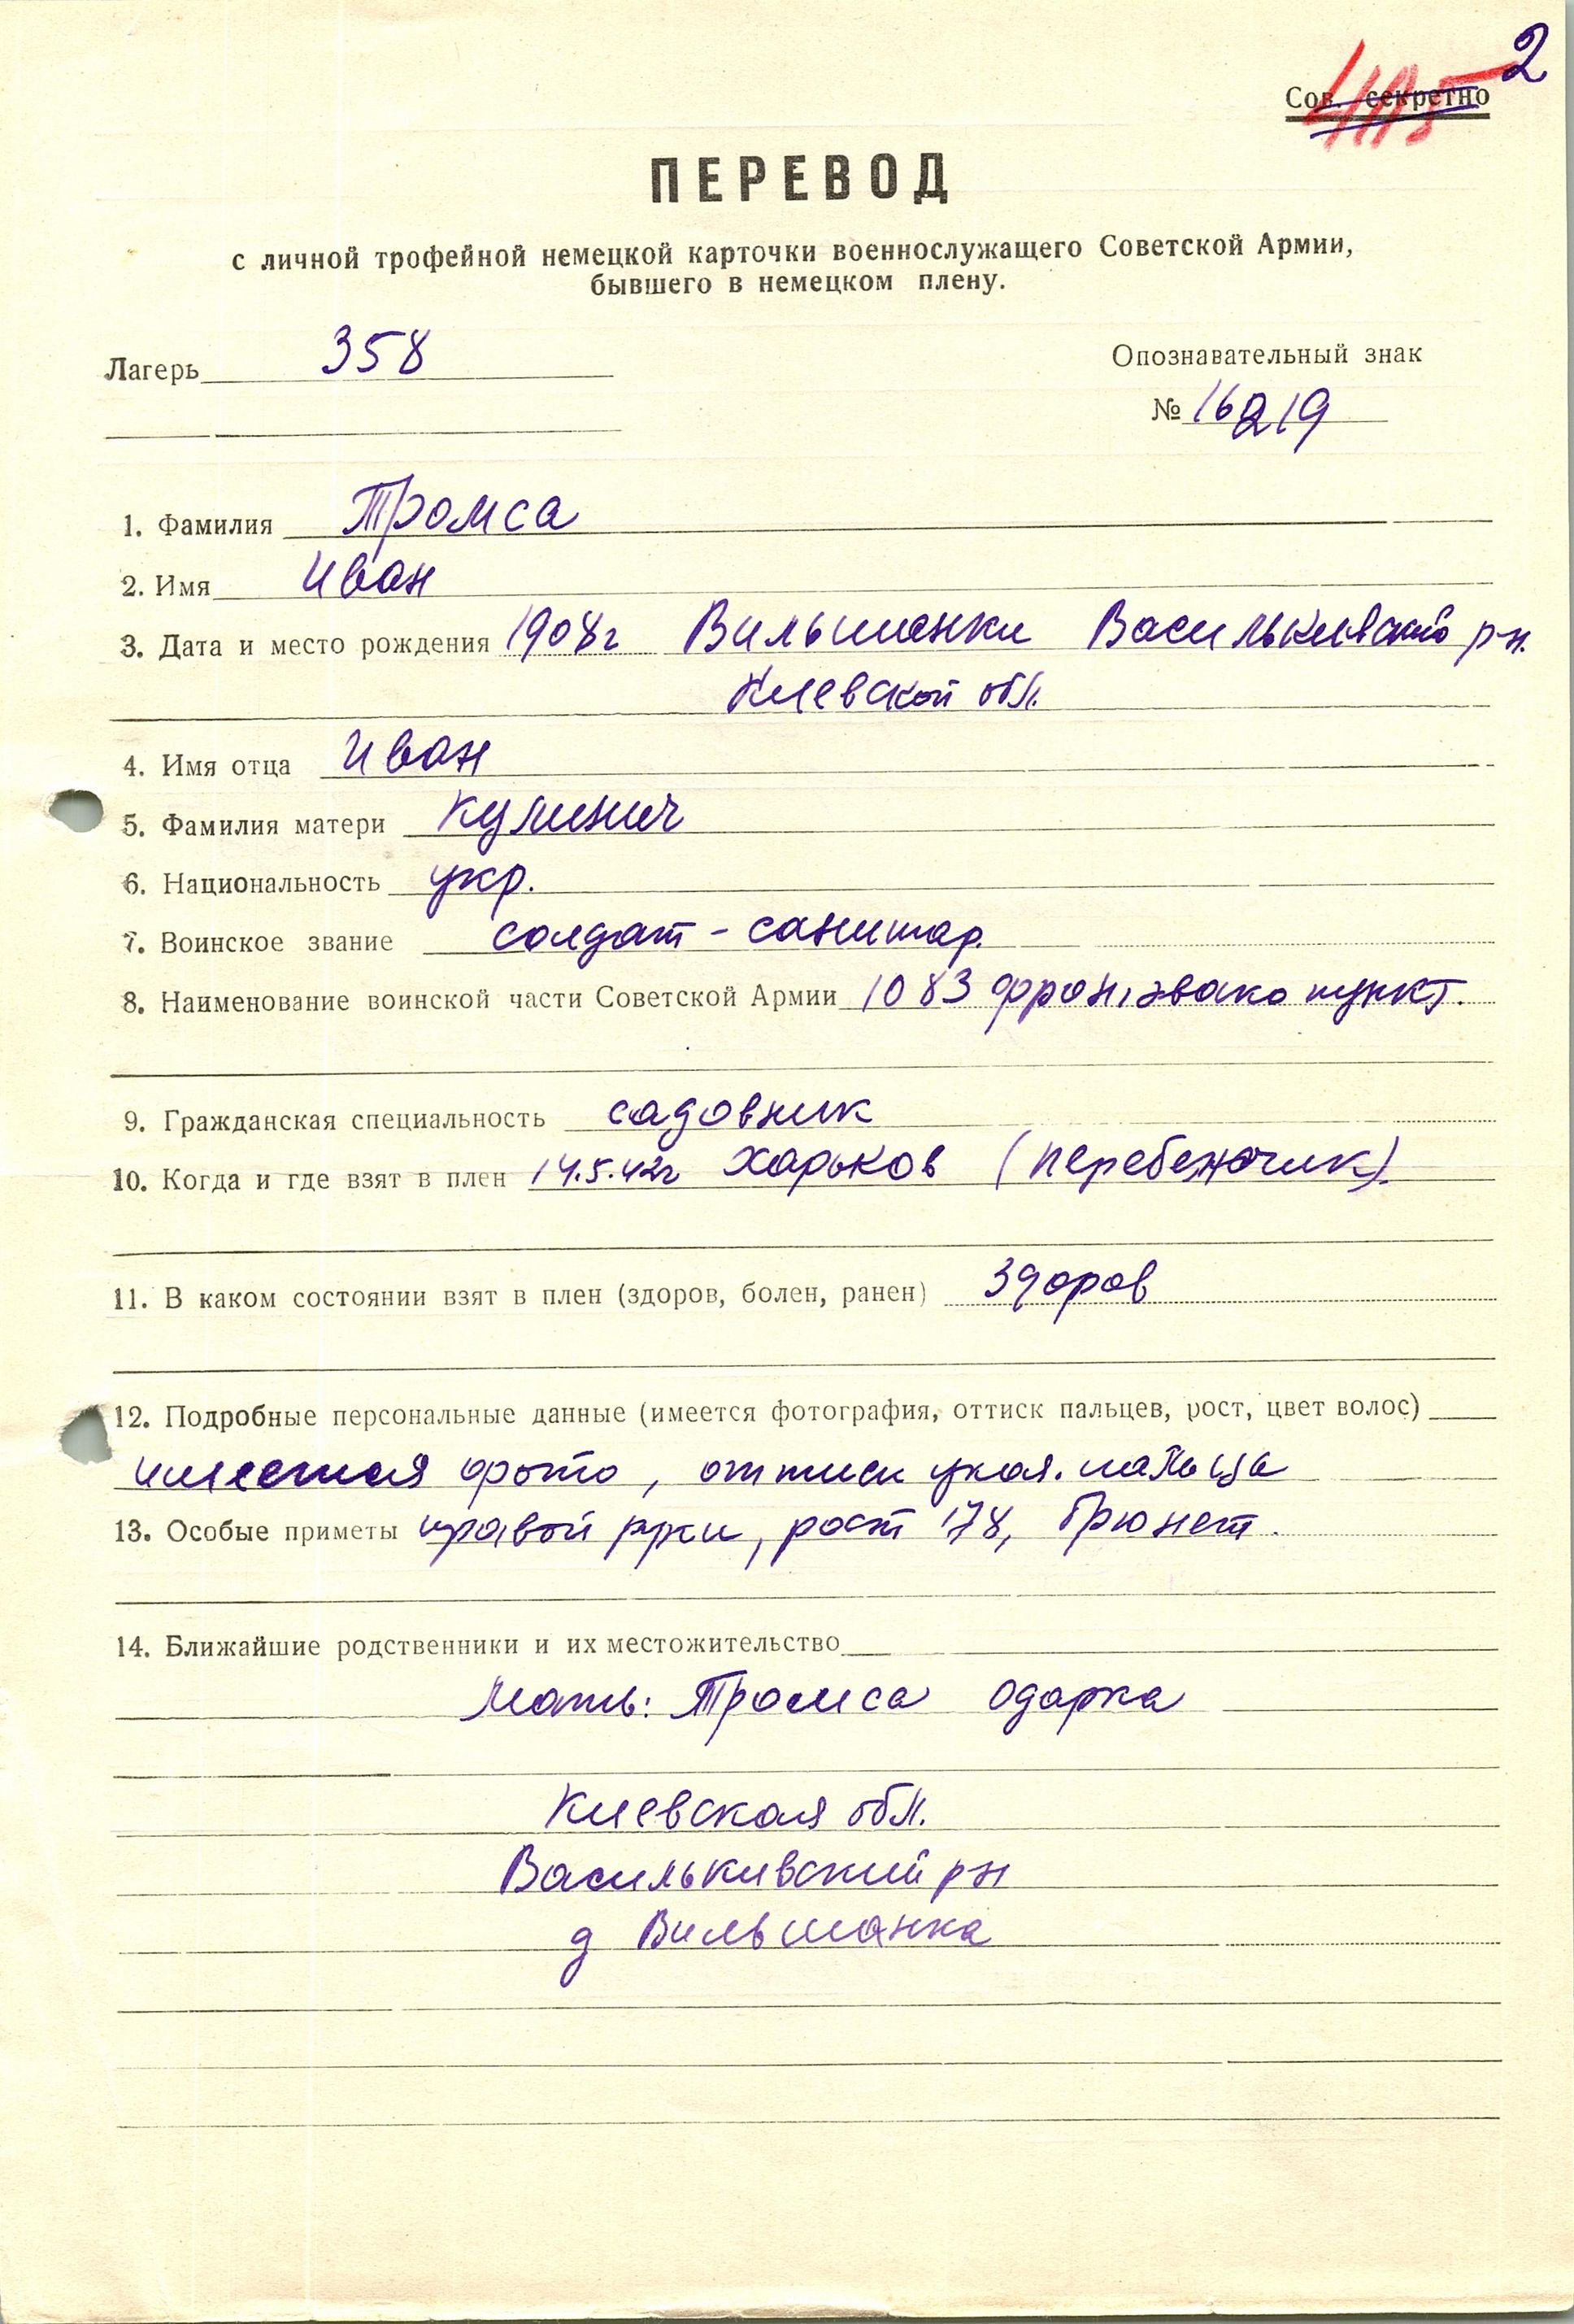 2
Сов. секретно
ПЕРЕВОД
с личной трофейной немецкой карточки военнослужащего Советской Армии,
бывшего в немецком плену.
Лагерь 358
Опознавательный знак
№ 16219
1. Фамилия Тромса
2. Имя Иван
3. Дата и место рождения 1908г Вильшанки Василькивский рн.
Киевской обл.
4. Имя отца Иван
5. Фамилия матери Кулинич
6. Национальность укр.
7. Воинское звание солдат - санитар.
8. Наименование воинской части Советской Армии 1083 фрон, эвако пункт.
9. Гражданская специальность садовник
10. Когда и где взят в плен 14.5.42г Харьков (перебежчик).
11. В каком состоянии взят в плен (здоров, болен, ранен) здоров
12. Подробные персональные данные (имеется фотография, оттиск пальцев, рост, цвет волос)
имеется фото, оттиск указ. пальца
13. Особые приметы правой руки, рост 178, брюнет.
14. Ближайшие родственники и их местожительство
Мать: Тромса Одарка
Киевская обл.
Василькивский рн
д Вильшанка